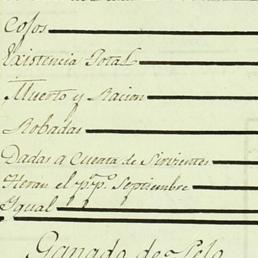 Cojos
Existencia Total
Muerto y Racion
Robadas
Dadas a Cuenta de Sirvientes
Heran el pp.º Septiembre
Igual
Ganado de Pelo